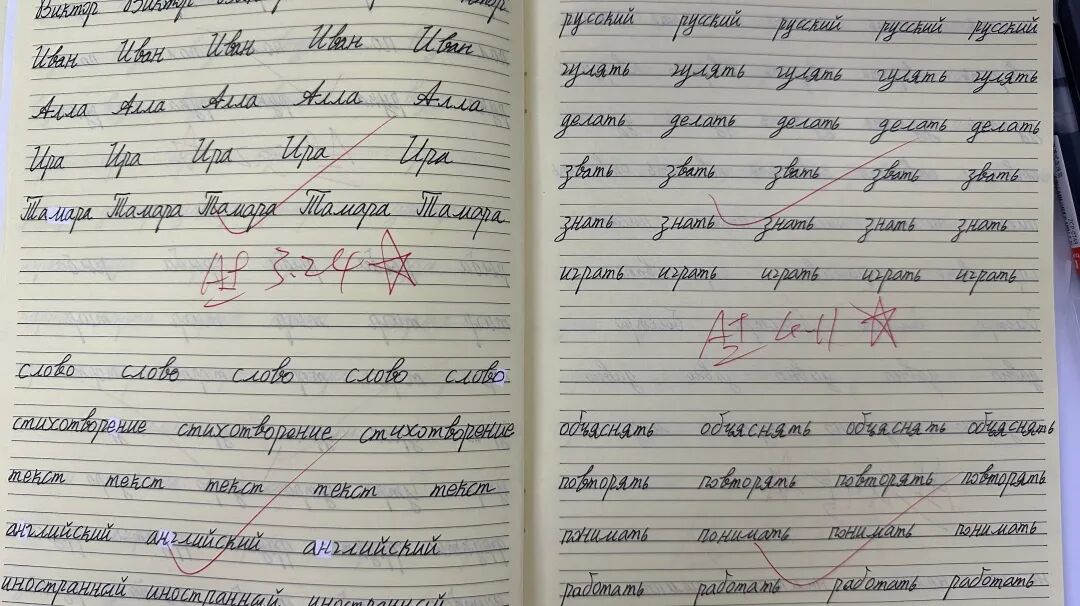 Виктор Виктор
Иван Иван Иван Иван Иван
Алла Алла Алла Алла Алла
Ира Ира Ира Ира Ира
Тамара Тамара Тамара Тамара Тамара
A+ 3.24
слово слово слово слово слово
стихотворение стихотворение стихотворение
текст текст текст текст текст
английский английский английский
иностранный иностранный иностранный
русский русский русский русский русский
гулять гулять гулять гулять гулять
делать делать делать делать делать
звать звать звать звать звать
знать знать знать знать знать
играть играть играть играть играть
A+ 4-11
объяснять объяснять объяснять объяснять
повторять повторять повторять повторять
понимать понимать понимать понимать
работать работать работать работать